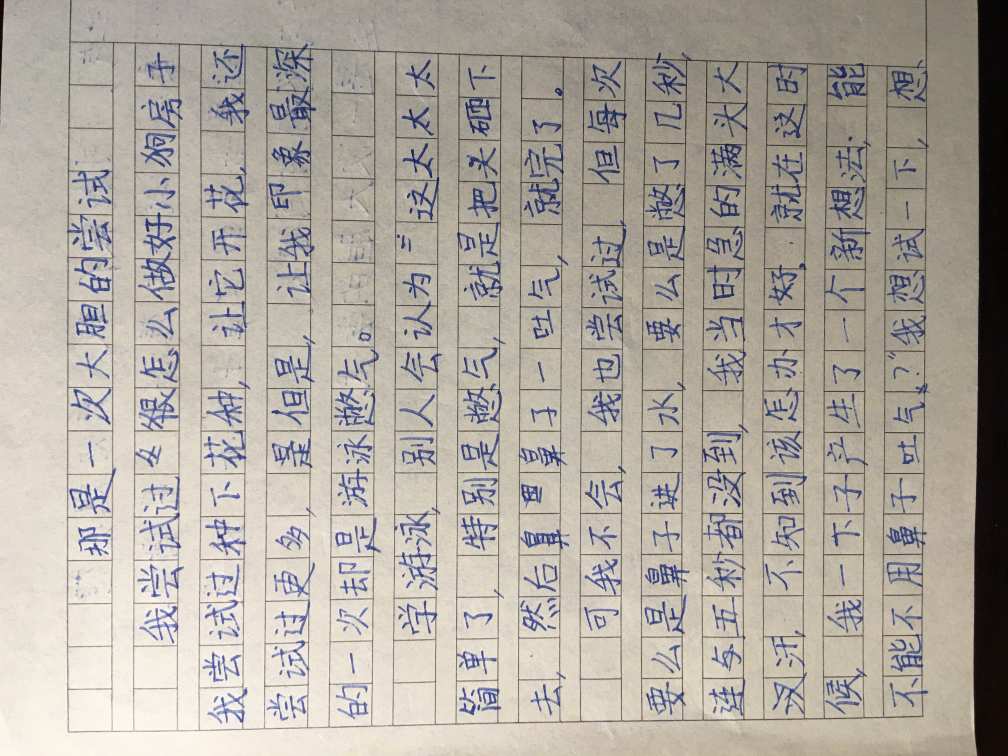 那是一次大胆的尝试
我尝试过 很怎么做好小狗房子
我尝试过种下花种,让它开花,我还
尝试过更多,是但是,让我印象最深
的一次却是游泳憋气。
学游泳,别人会认为“这太太太
简单了,特别是憋气,就是把头砸下
去,然后鼻 鼻子一吐气,就完了。
可我不会,我也尝试过,但每次
要么是鼻子进了水,要么是憋了几秒,
连 五秒都没到,我当时急的满头大
汉汗,不知到该怎办才好.就在这时
候,我一下子产生了一个新想法,能
不能不用鼻子吐气?”我想试一下,想